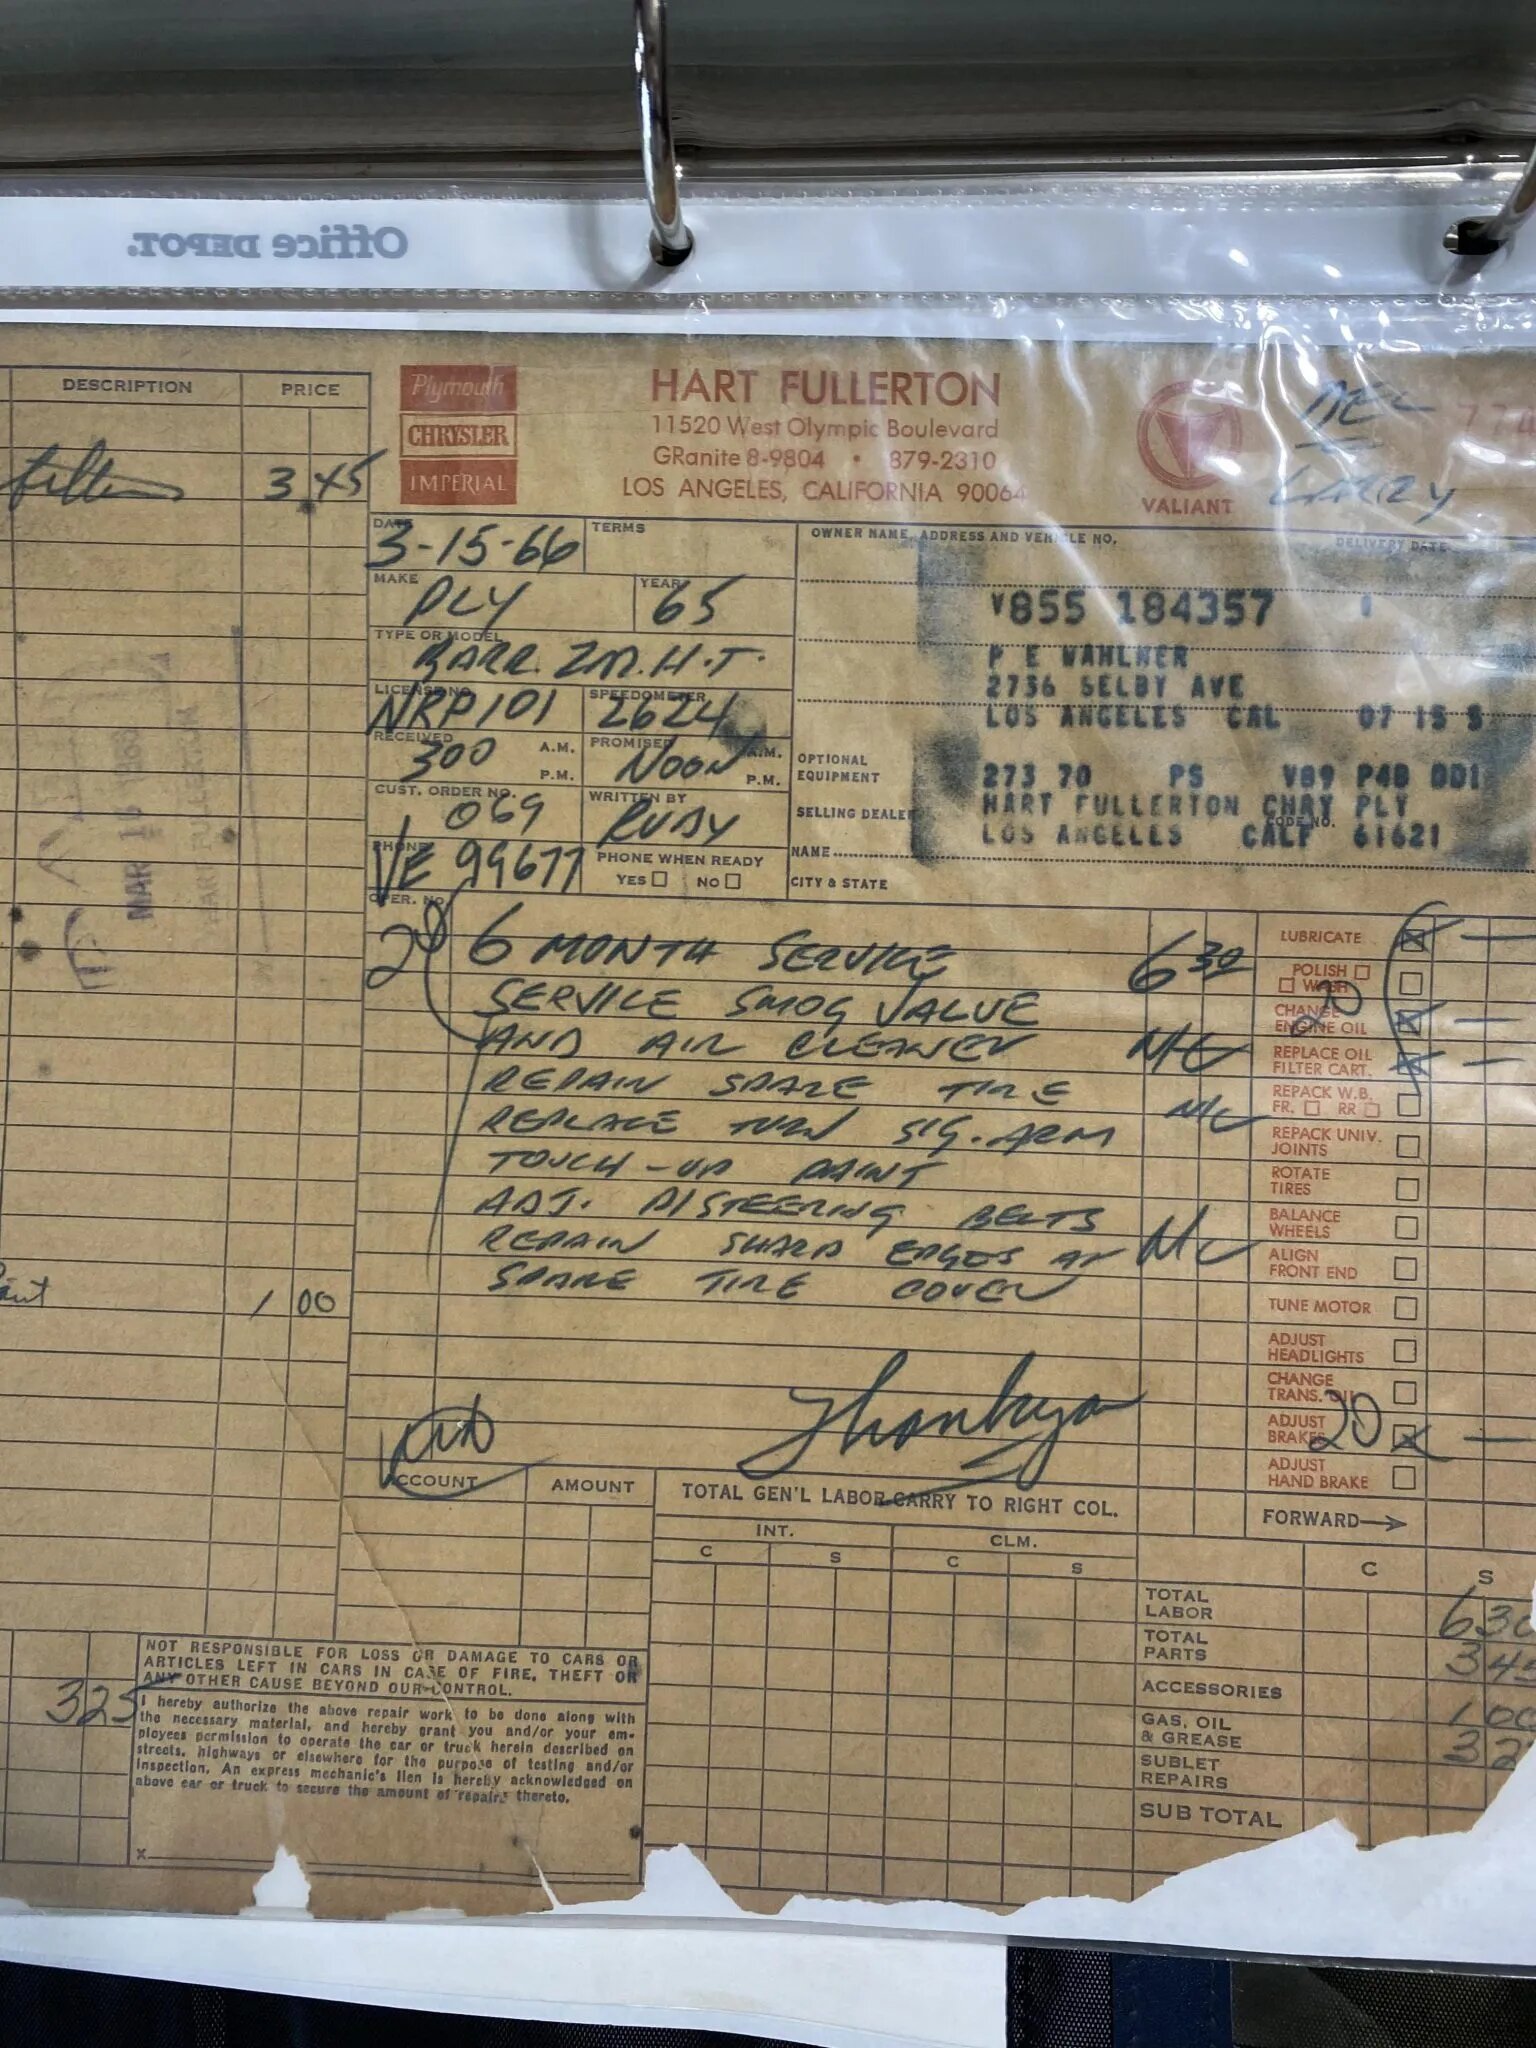 Office DEPOT.
DESCRIPTION PRICE
3.45
1 00
325
Plymouth
CHRYSLER
IMPERIAL
HART FULLERTON
11520 West Olympic Boulevard
GRanite 8-9804 • 879-2310
LOS ANGELES, CALIFORNIA 90064
VALIANT
LARRY
774
DATE 3-15-66 TERMS
MAKE PLY YEAR 65
TYPE OR MODEL BARR. 2M.H.T.
LICENSE NO. NRP101 SPEEDOMETER 2624
RECEIVED 300 A.M. P.M. PROMISED NOON A.M. P.M.
CUST. ORDER NO. 069 WRITTEN BY RUDY
PHONE VE 99677 PHONE WHEN READY
YES NO
OWNER NAME, ADDRESS AND VEHICLE NO. DELIVERY DATE
V855 184357 1
P E WAHLNER
2736 SELBY AVE
LOS ANGELES CAL 07 15 5
OPTIONAL EQUIPMENT 273 70 PS V89 P4B DD1
SELLING DEALER HART FULLERTON CHRY PLY
CODE NO.
LOS ANGELES CALF 61621
NAME
CITY & STATE
MAR 16
HART FULLERTON
OPER. NO.
20 6 MONTH SERVICE 6 30
SERVICE SMOG VALVE
AND AIR CLEANER N/C
REPAIR SPARE TIRE
REPLACE TURN SIG. ARM N/C
TOUCH-UP PAINT
ADJ. P/STEERING BELTS
REPAIR SHARP EDGES AT N/C
SPARE TIRE COVER
Thank you
LUBRICATE
POLISH
WASH
20
CHANGE
ENGINE OIL
REPLACE OIL
FILTER CART.
REPACK W.B.
FR. RR
REPACK UNIV.
JOINTS
ROTATE
TIRES
BALANCE
WHEELS
ALIGN
FRONT END
TUNE MOTOR
ADJUST
HEADLIGHTS
CHANGE
TRANS. OIL
ADJUST
BRAKES 20
ADJUST
HAND BRAKE
FORWARD
ACCOUNT AMOUNT
TOTAL GEN'L LABOR-CARRY TO RIGHT COL.
INT. CLM.
C S C S
C S
TOTAL
LABOR 630
TOTAL
PARTS 345
ACCESSORIES
GAS, OIL
& GREASE 1 00
SUBLET
REPAIRS
SUB TOTAL
NOT RESPONSIBLE FOR LOSS OR DAMAGE TO CARS OR
ARTICLES LEFT IN CARS IN CASE OF FIRE, THEFT OR
ANY OTHER CAUSE BEYOND OUR CONTROL.
I hereby authorize the above repair work to be done along with
the necessary material, and hereby grant you and/or your em-
ployees permission to operate the car or truck herein described on
streets, highways or elsewhere for the purpose of testing and/or
inspection. An express mechanic's lien is hereby acknowledged on
above car or truck to secure the amount of repairs thereto.
x